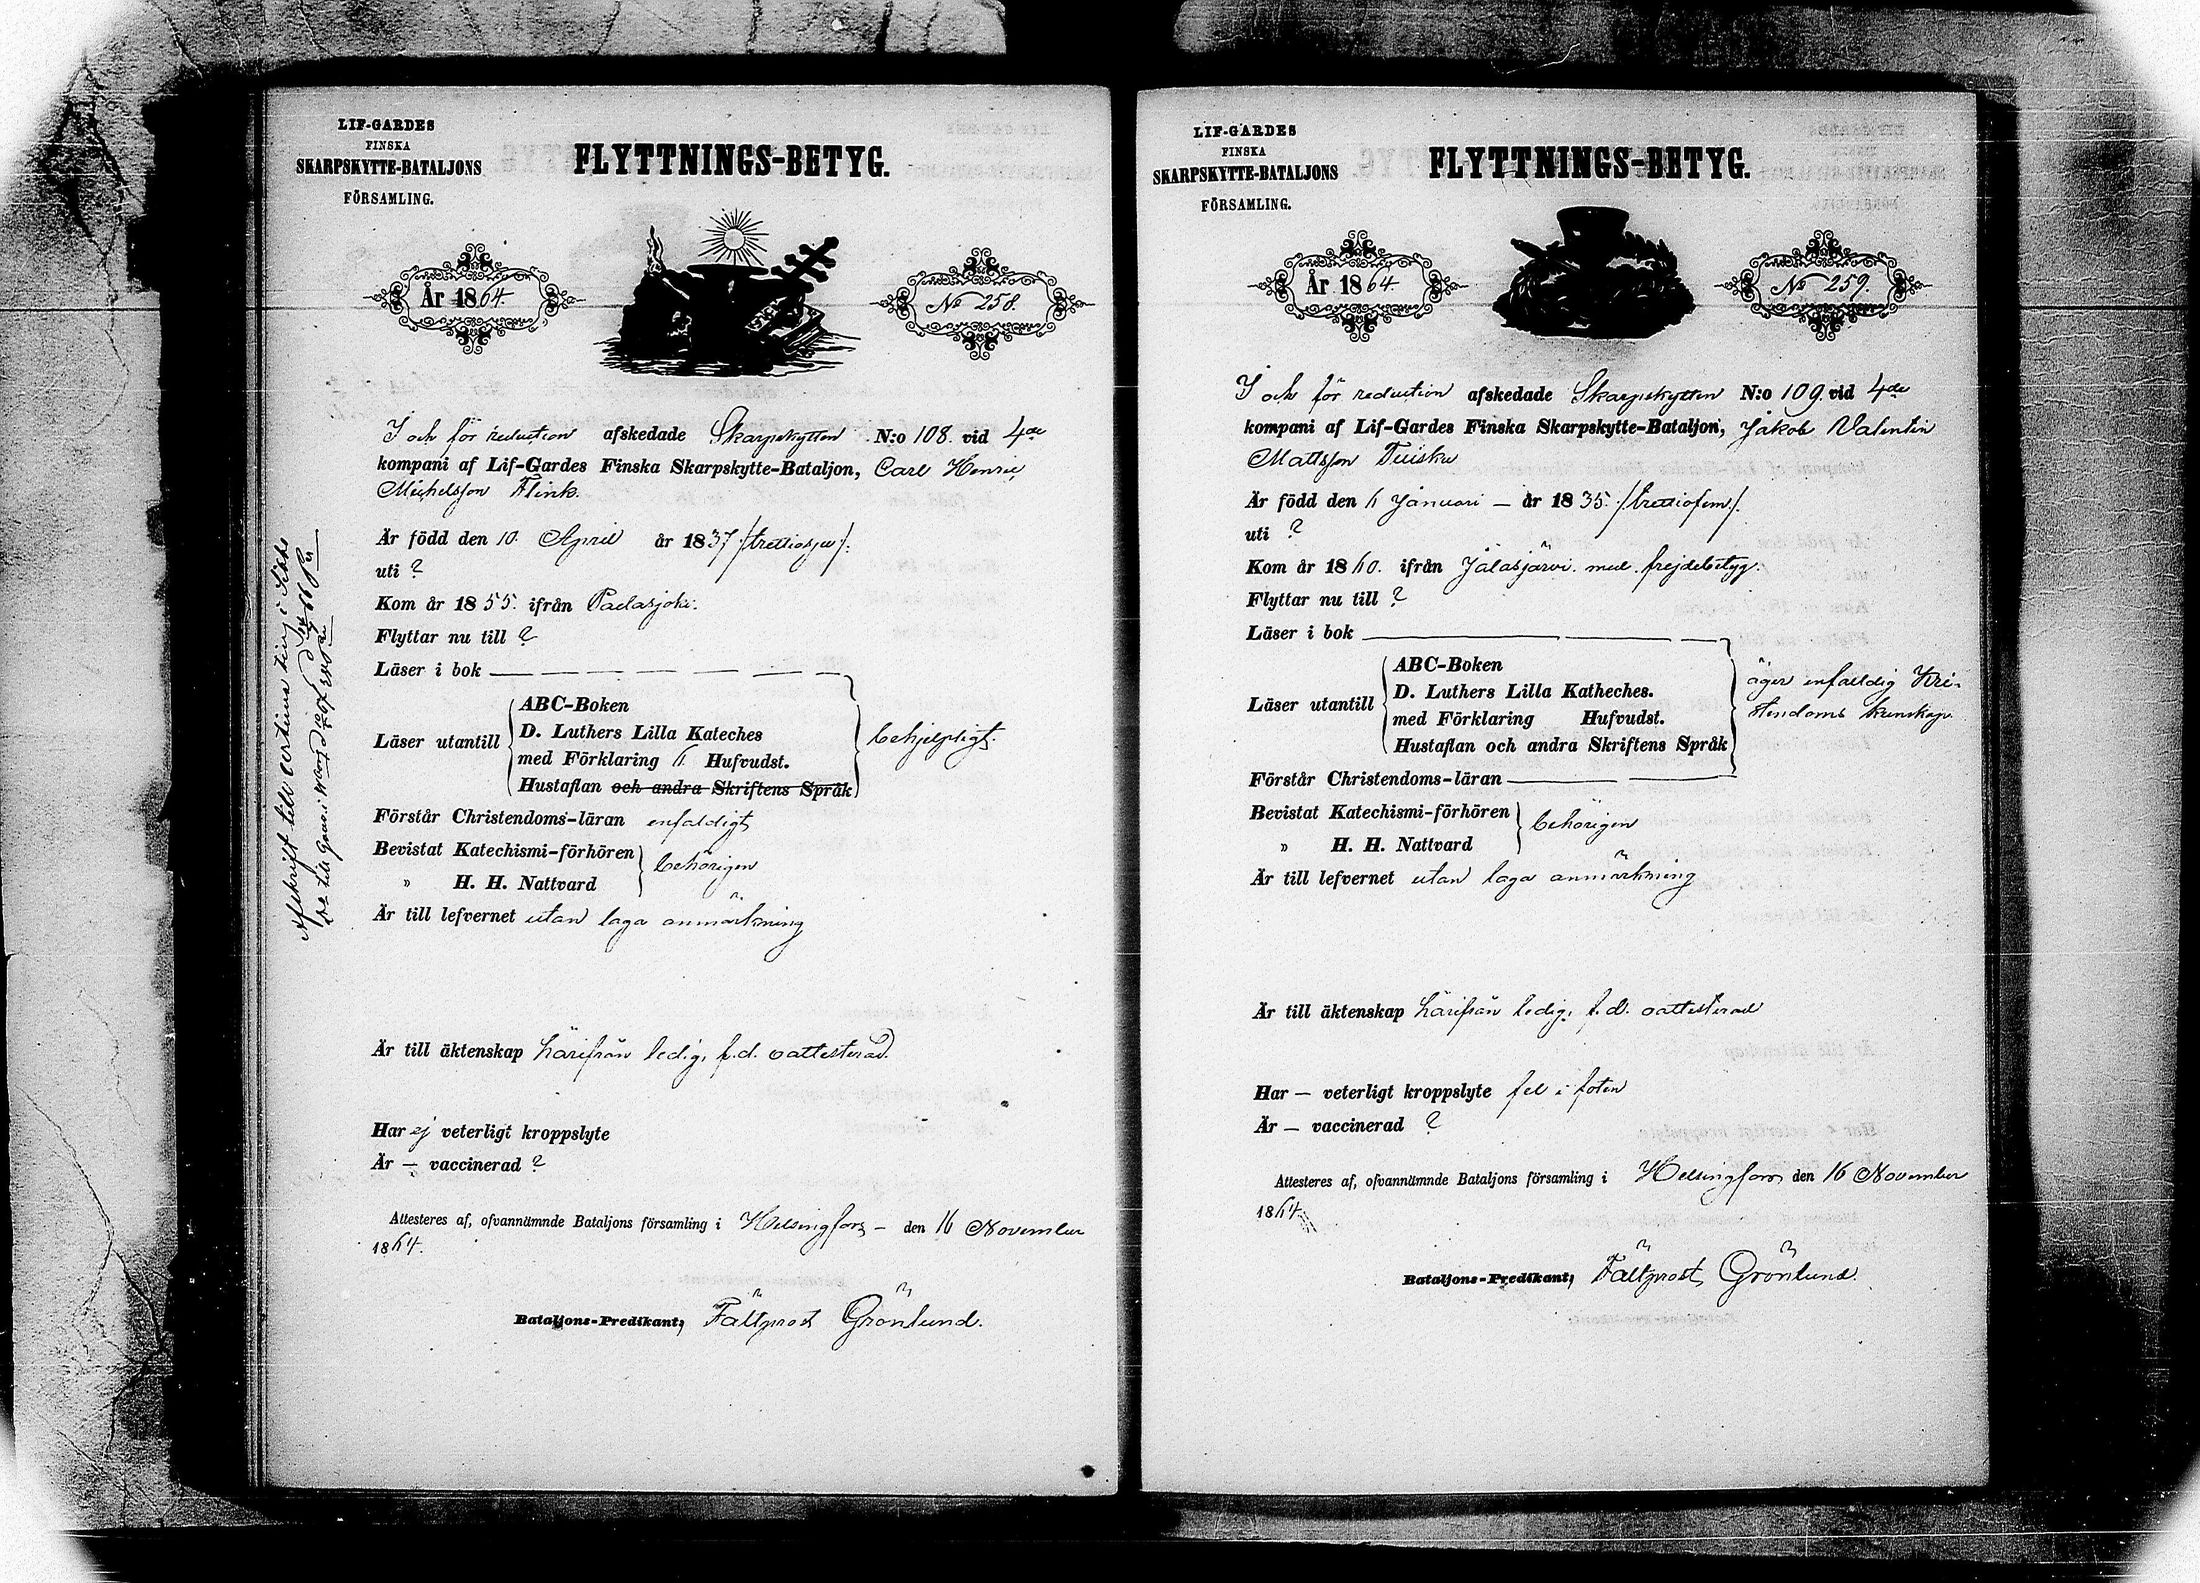 LIF-GARDES
FINSKA
SKARPSKYTTE-BATALJONS
FÖRSAMLING.
FLYTTNINGS-BETYG.
År 1864
No 258.
I och för reduction afskedade Skarpskytten N:o 108. vid 4de
kompani af Lif-Gardes Finska Skarpskytte-Bataljon, Carl Henric
Michelsson Flink.
Är född den 10. April år 1837 /:trettiosju/:
uti ?
Kom år 1855. ifrån Padasjoki.
Flyttar nu till ?
Läser i bok
Läser utantill
ABC-Boken
D. Luthers Lilla Kateches
med Förklaring 6 Hufvudst.
Hustaflan och andra Skriftens Språk
behjelpligt.
Förstår Christendoms-läran enfaldigt
Bevistat Katechismi-förhören
» H. H. Nattvard
behörigen
Är till lefvernet utan laga anmärkning
Är till äktenskap härifrån ledig, f.d. oattesterad.
Har ej veterligt kroppslyte
Är — vaccinerad ?
Attesteres af, ofvannämnde Bataljons församling i Helsingfors – den 16 November
1864.
Bataljons-Predikant, Fältprost Grönlund.
Afskrift till
LIF-GARDES
FINSKA
SKARPSKYTTE-BATALJONS
FÖRSAMLING.
FLYTTNINGS-BETYG.
År 1864
No 259.
I och för reduction afskedade Skarpskytten N:o 109. vid 4de
kompani af Lif-Gardes Finska Skarpskytte-Bataljon, Jakob Valentin
Mattsson Tuisku
Är född den 6 Januari — år 1835. /:trettiofem/.
uti ?
Kom år 1860. ifrån Jalasjärvi. med frejdebetyg.
Flyttar nu till ?
Läser i bok
Läser utantill
ABC-Boken
D. Luthers Lilla Katheches.
med Förklaring Hufvudst.
Hustaflan och andra Skriftens Språk
äger enfaldig Kri-
stendoms kunskap
Förstår Christendoms-läran
Bevistat Katechismi-förhören
» H. H. Nattvard
behörigen
Är till lefvernet utan laga anmärkning
Är till äktenskap härifrån ledig, f.d. oattesterad
Har — veterligt kroppslyte fel i foten
Är — vaccinerad ?
Attesteres af, ofvannämnde Bataljons församling i Helsingfors den 16 November
1864
Bataljons-Predikant, Fältprost Grönlund.